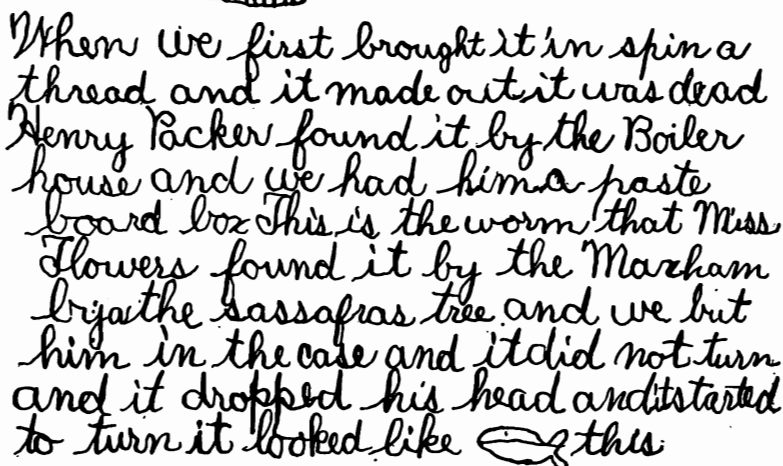 When we first brought it in spin a
thread and it made out it was dead
Henry Packer found it by the Boiler
house and we had him a paste
board box This is the worm that Miss
Flowers found it by the Marham
by the sassafras tree and we but
him in the case and it did not turn
and it dropped his head and it started
to turn it looked like this